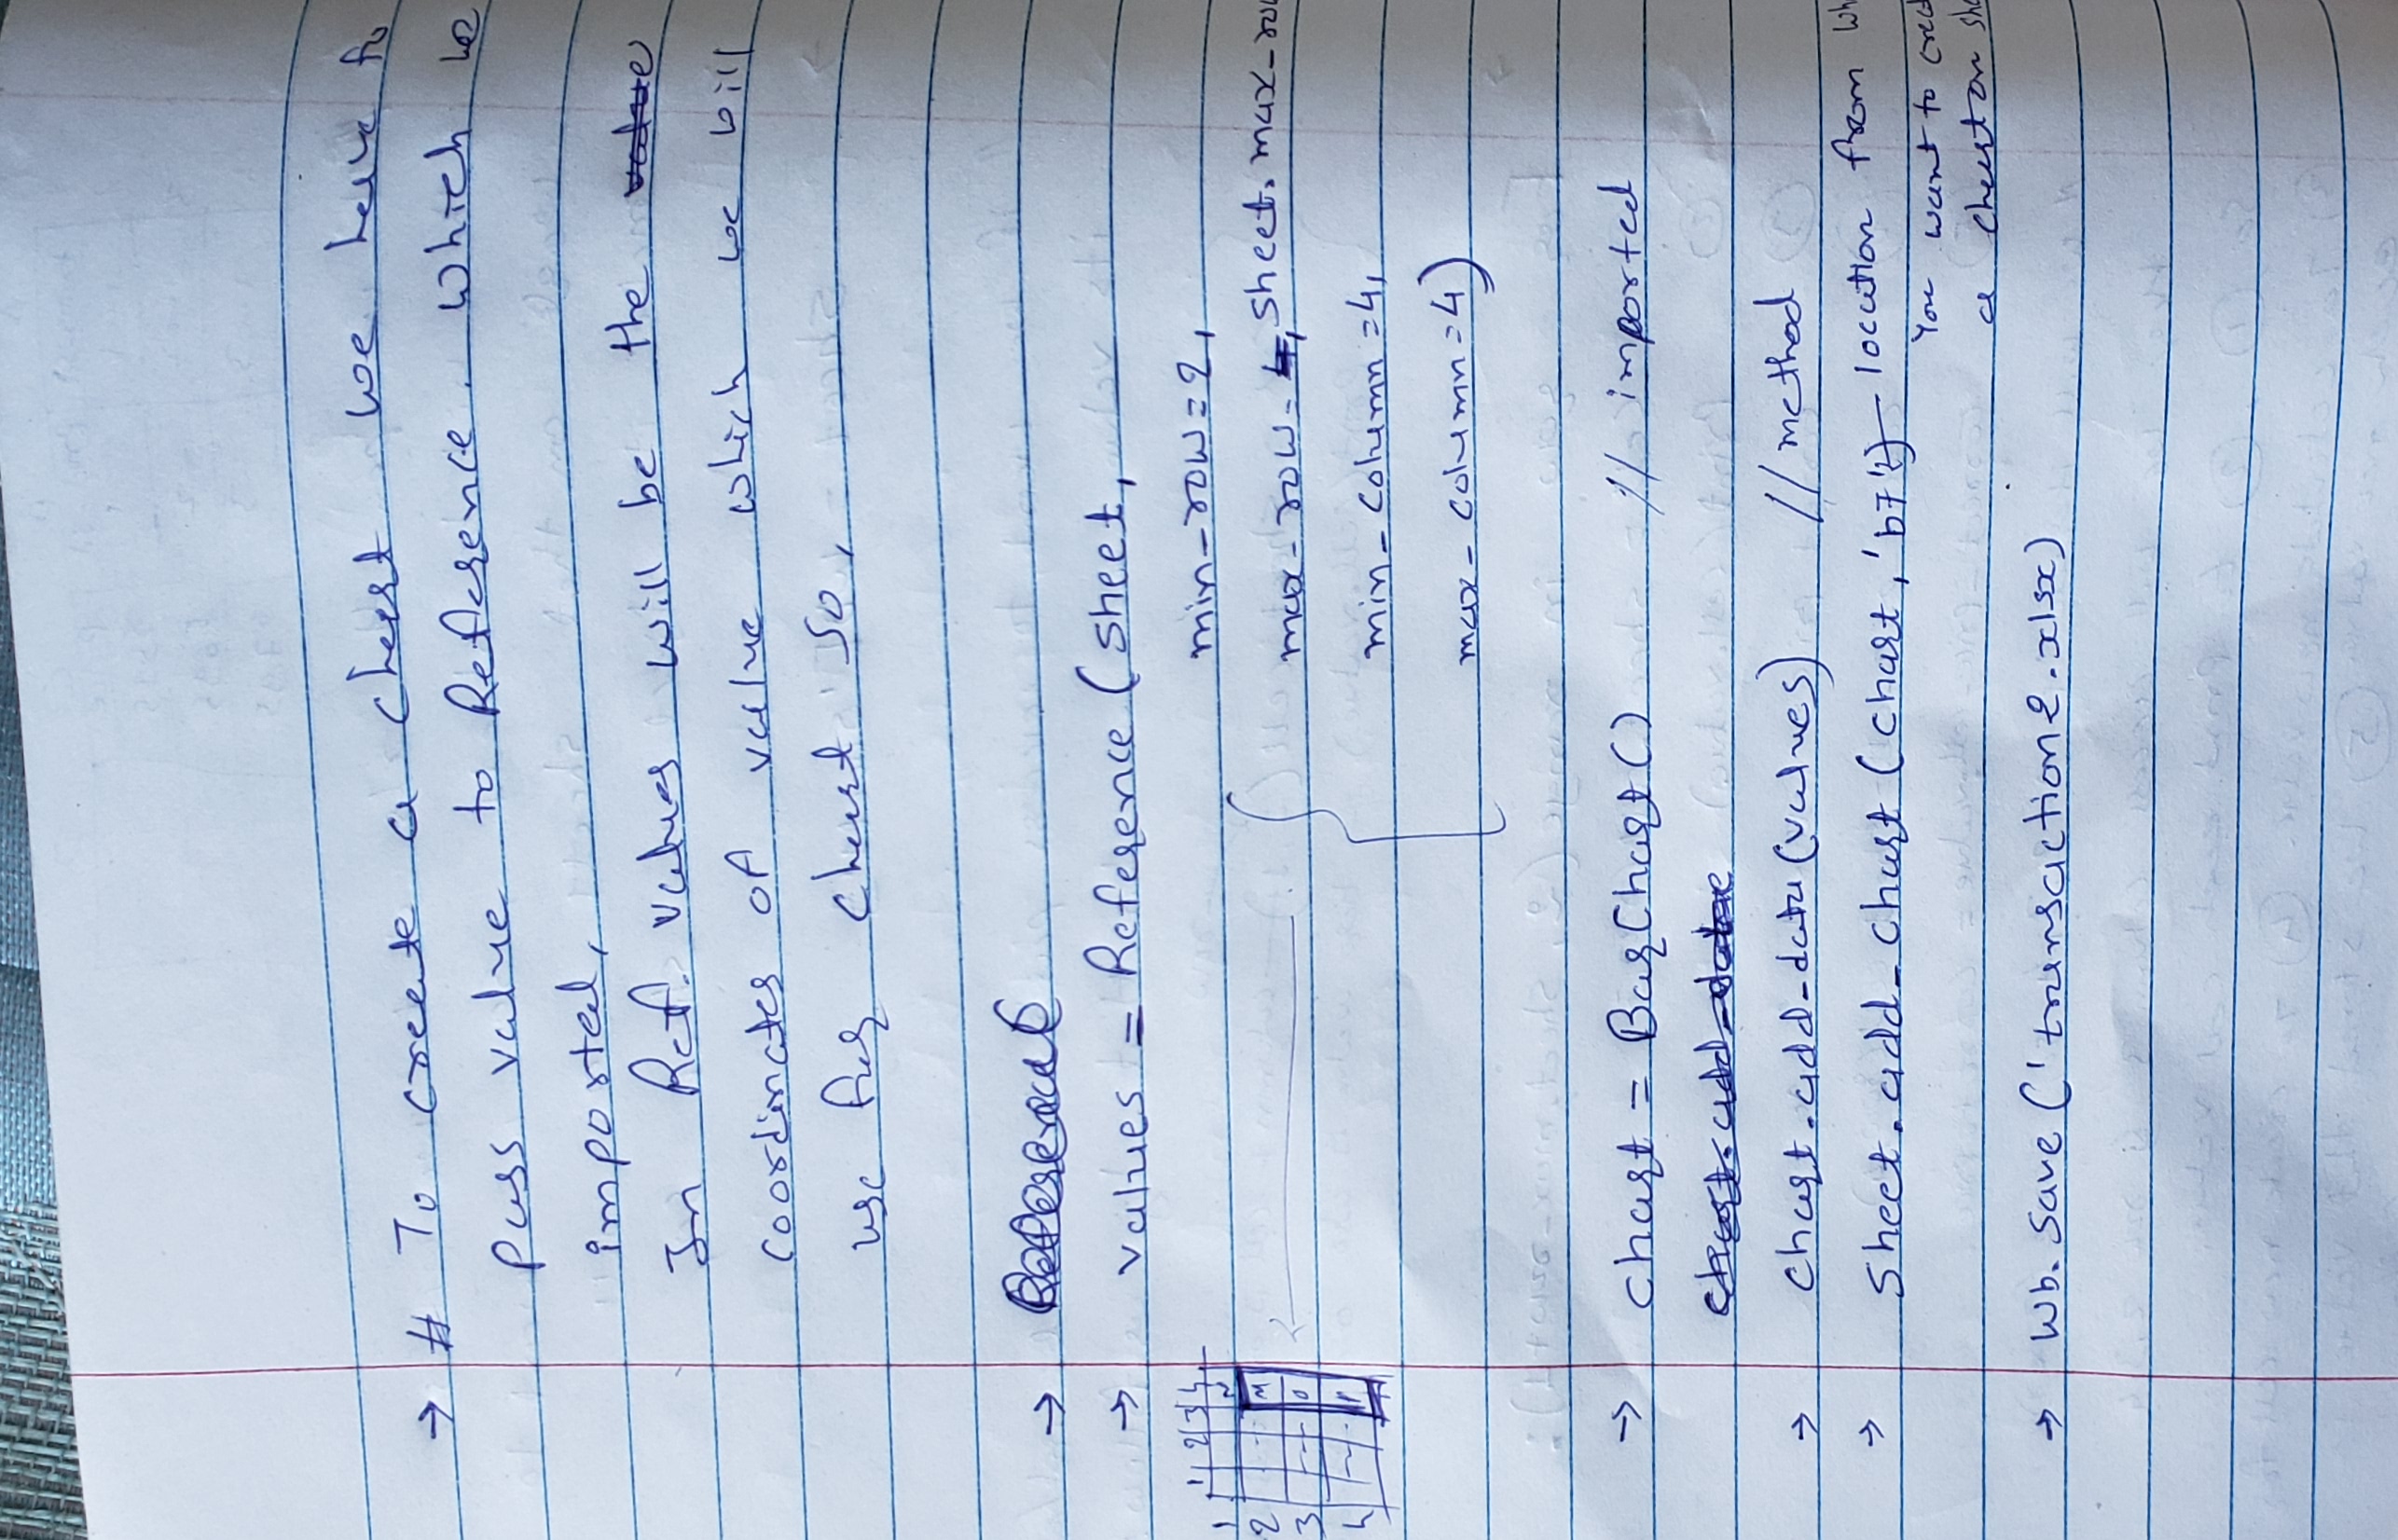 → # To create a chart we have to
pass value to Reference. which we
imported,
In Ref. values will be the value
coordinates of value which we will
use for chart so,
→ Reference(
→ values = Reference (sheet,
min_row=2,
1 2 3 4
1 N
2 M
3 O
4 P
max_row= 4, sheet.max_row
min_column=4,
max_column=4)
→ chart = BarChart() // imported
chart.add_data
→ chart.add_data(values) // method
→ sheet.add_chart (chart, 'b7') location from
You want to
a chart on
→ Wb.save('transaction2.xlsx)